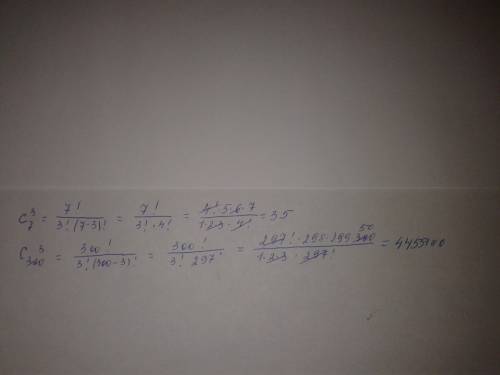 C₇³ = 7! / 3!(7-3)! = 7! / 3!·4! = 4!·5·6·7 / 1·2·3·4! = 35
C₃₀₀³ = 300! / 3!(300-3)! = 300! / 3! 297! = 297!·298·299·300 50 / 1·2·3·297! = 4455100